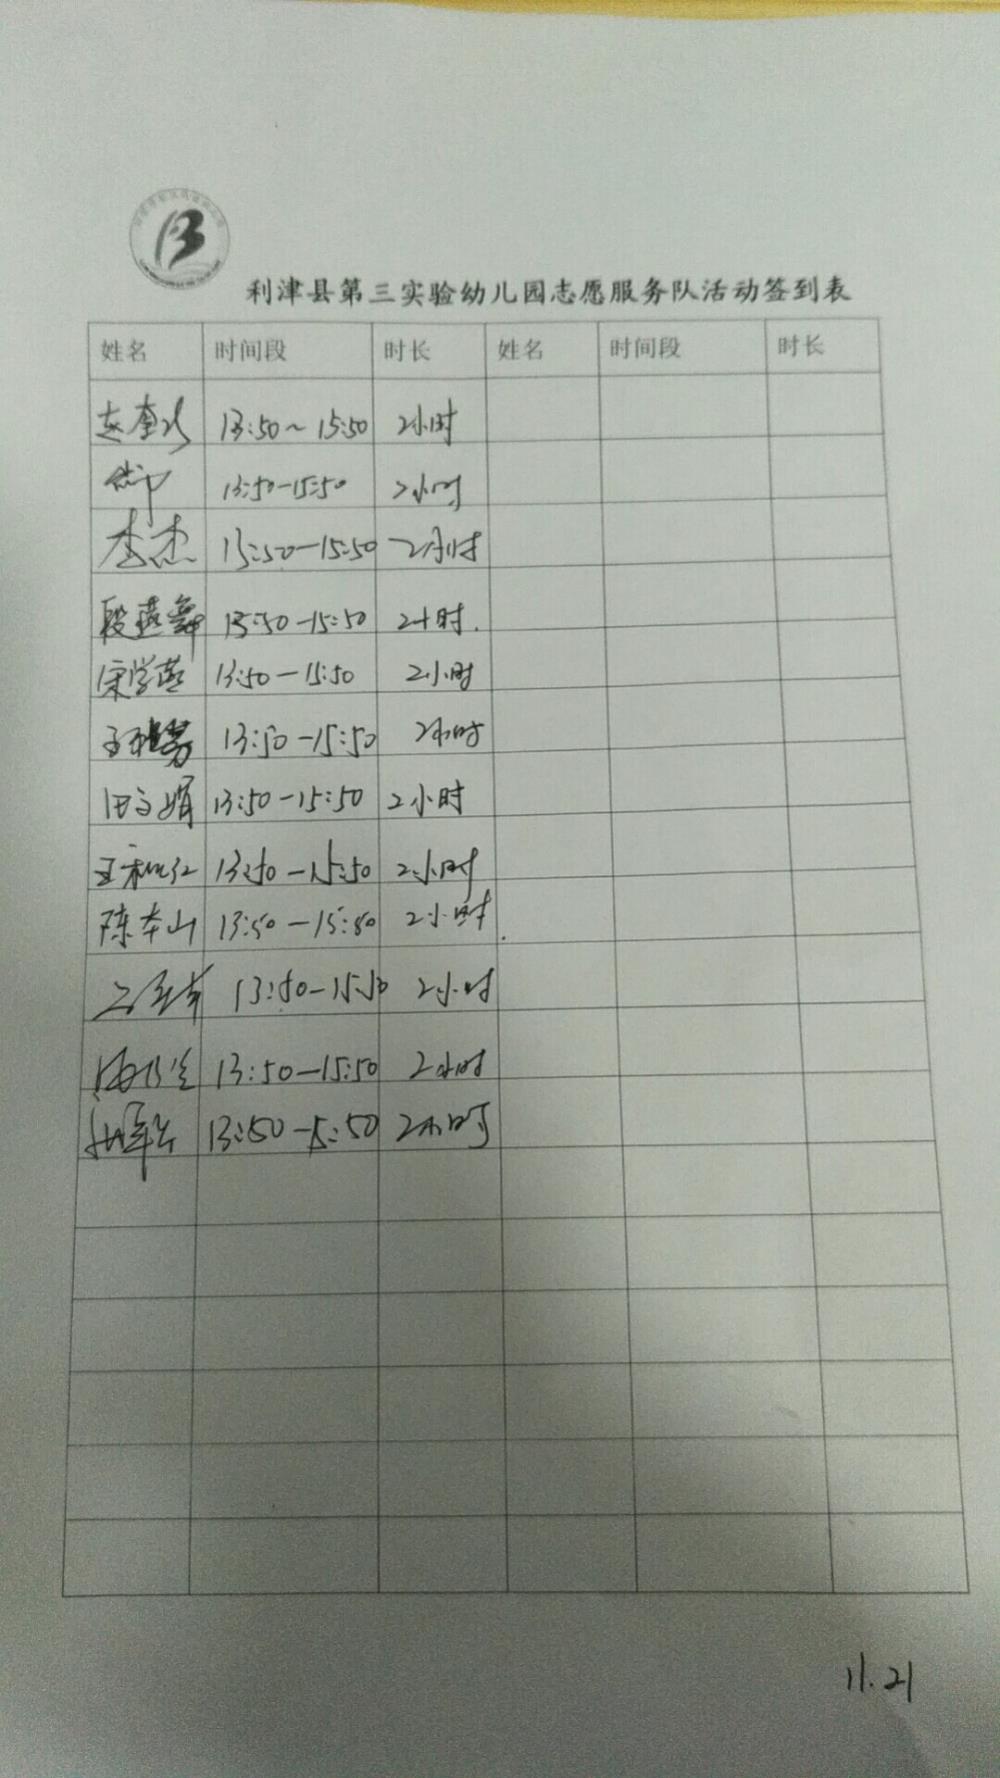 利津县第三实验幼儿园志愿服务队活动签到表
姓名 时间段 时长 姓名 时间段 时长
13:50~15:50 2小时
13:50-15:50 2小时
李杰 13:50-15:50 2小时
段燕舞 13:50-15:50 2小时.
宋学燕 13:50-15:50 2小时
13:50-15:50 2小时
田文娟 13:50-15:50 2小时
13:50-15:50 2小时
陈本山 13:50-15:50 2小时.
13:50-15:50 2小时
13:50-15:50 2小时
13:50-15:50 2小时
11.21